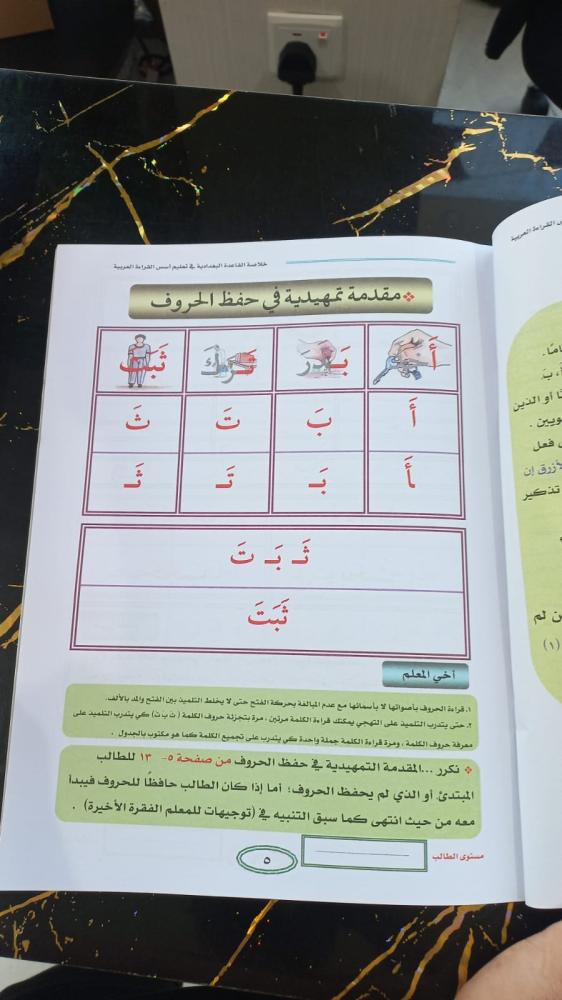 خلاصة القاعدة البغدادية في تعليم أسس القراءة العربية
مقدمة تمهيدية في حفظ الحروف
أَ بَـدر تَـرك ثَبَتَ
أَ بَ تَ ثَ
ـأَ بَـ تَـ ثَـ
ثَـ بَـ تَ
ثَبَتَ
أخي المعلم
١. قراءة الحروف بأصواتها لا بأسمائها مع عدم المبالغة بحركة الفتح حتى لا يخلط التلميذ بين الفتح والمد بالألف.
٢. حتى يتدرب التلميذ على التهجي يمكنك قراءة الكلمة مرتين ، مرة بتجزئة حروف الكلمة (ث بَ تَ) كي يتدرب التلميذ على
معرفة حروف الكلمة ، ومرة قراءة الكلمة جملة واحدة كي يتدرب على تجميع الكلمة كما هو مكتوب بالجدول .
نكرر ...المقدمة التمهيدية في حفظ الحروف من صفحة ٥- ١٣ للطالب
المبتدئ أو الذي لم يحفظ الحروف؛ أما إذا كان الطالب حافظًا للحروف فيبدأ
معه من حيث انتهى كما سبق التنبيه في (توجيهات للمعلم الفقرة الأخيرة) .
مستوى الطالب
٥
القراءة العربية
أو الذين
ويين .
فعل
لأزرق إن
تذكير
ن لم
(١)